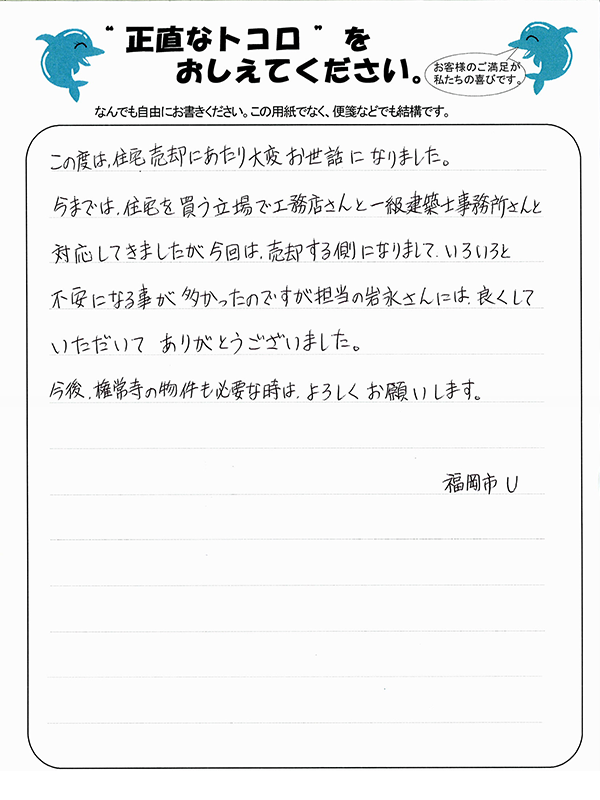 “正直なトコロ”を
おしえてください。
お客様のご満足が
私たちの喜びです。
なんでも自由にお書きください。この用紙でなく、便箋などでも結構です。
この度は、住宅売却にあたり大変お世話になりました。
今までは、住宅を買う立場で工務店さんと一級建築士事務所さんと
対応してきましたが今回は、売却する側になりまして、いろいろと
不安になる事が多かったのですが担当の岩永さんには、良くして
いただいてありがとうございました。
今後、権常寺の物件も必要な時は、よろしくお願いします。
福岡市 U